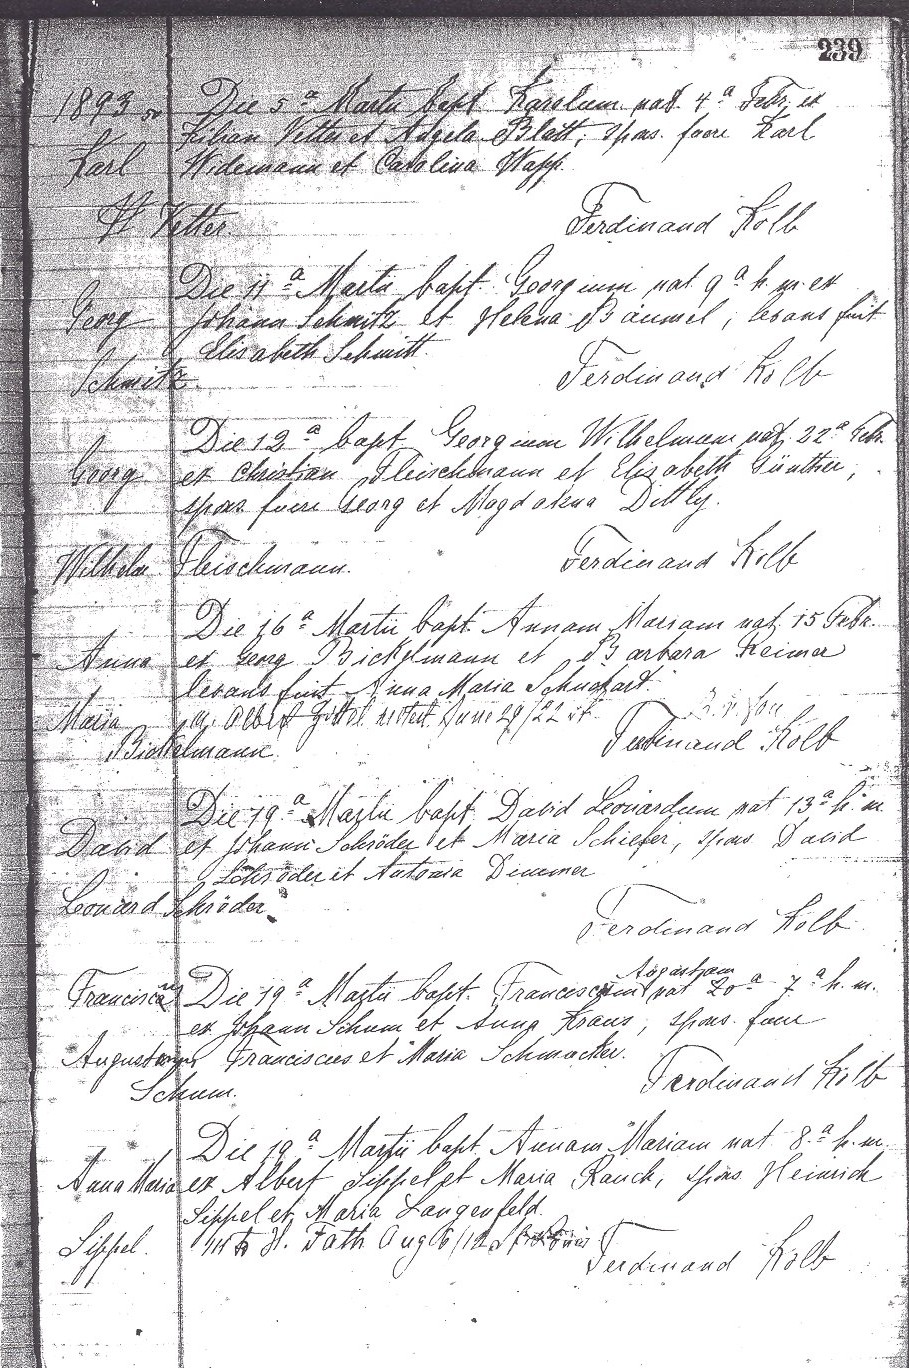 239
1893 Die 5ª Martii bapt. Karolum nat. 4ª Febr. ex
Kilian Vetter et Angela Blatt, spons. fuere Karl
Karl Widemann et Carolina Wapp.
Vetter. Ferdinand Kolb
Die 11ª Martii bapt. Georgium nat 9ª h. m. ex
Georg Johann Schmitz et Helena Bäumel, levans fuit
Elisabeth Schmitt.
Schmitz. Ferdinand Kolb
Die 12ª bapt. Georgium Wilhelmum nat. 22ª Febr.
Georg ex Christian Fleischmann et Elisabeth Günther,
spons. fuere Georg et Magdalena Dittly.
Wilhelm Fleischmann. Ferdinand Kolb
Die 16ª Martii bapt. Annam Mariam nat. 15 Febr.
Anna ex Georg Bickelmann et Barbara Reimer
levans fuit Anna Maria Schuchart.
Maria Albert June 29/22
Bickelmann Ferdinand Kolb
Die 19ª Martii bapt. David Leonardum nat 13ª h. m.
David ex Johann Schröder et Maria Schiefer, spons David
Schröder et Antonia Demmer
Leonard Schröder. Ferdinand Kolb
Augustam
Francisca Die 19ª Martii bapt. Franciscum nat 20ª 7ª h. m.
ex Johann Schum et Anna Kraus, spons. fuere
Franciscus et Maria Schmacker.
Schum. Ferdinand Kolb
Die 19ª Martii bapt. Annam Mariam nat 8.ª h. m.
Anna Maria ex Albert Sippel et Maria Rauch, spons. Heinrich
Sippel et Maria Langenfeld.
Sippel. H. Fath Aug 6/12
Ferdinand Kolb